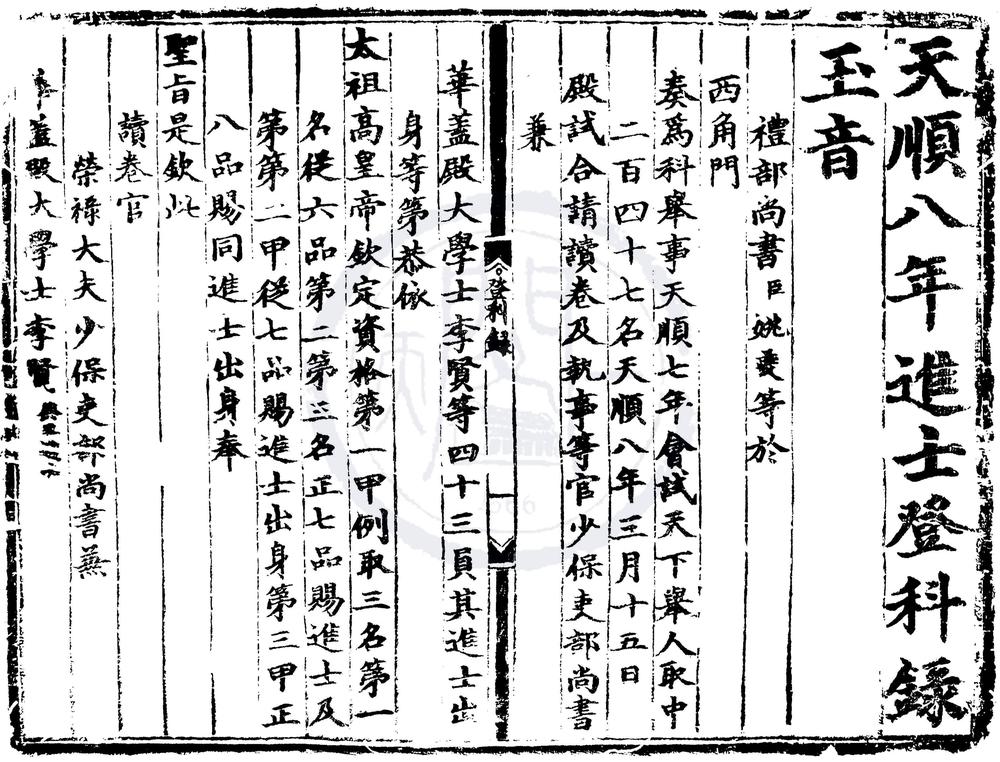 天順八年進士登科錄
玉音
禮部尚書臣姚夔等於
西角門
奏爲科舉事天順七年會試天下舉人取中
二百四十七名天順八年三月十五日
殿試合請讀卷及執事等官少保吏部尚書
兼
登科錄
華蓋殿大學士李賢等四十三員其進士出
身等第恭依
太祖高皇帝欽定資格第一甲例取三名第一
名從六品第二第三名正七品賜進士及
第第二甲從七品賜進士出身第三甲正
八品賜同進士出身奉
聖旨是欽此
讀卷官
榮祿大夫少保吏部尚書兼
華蓋殿大學士李賢